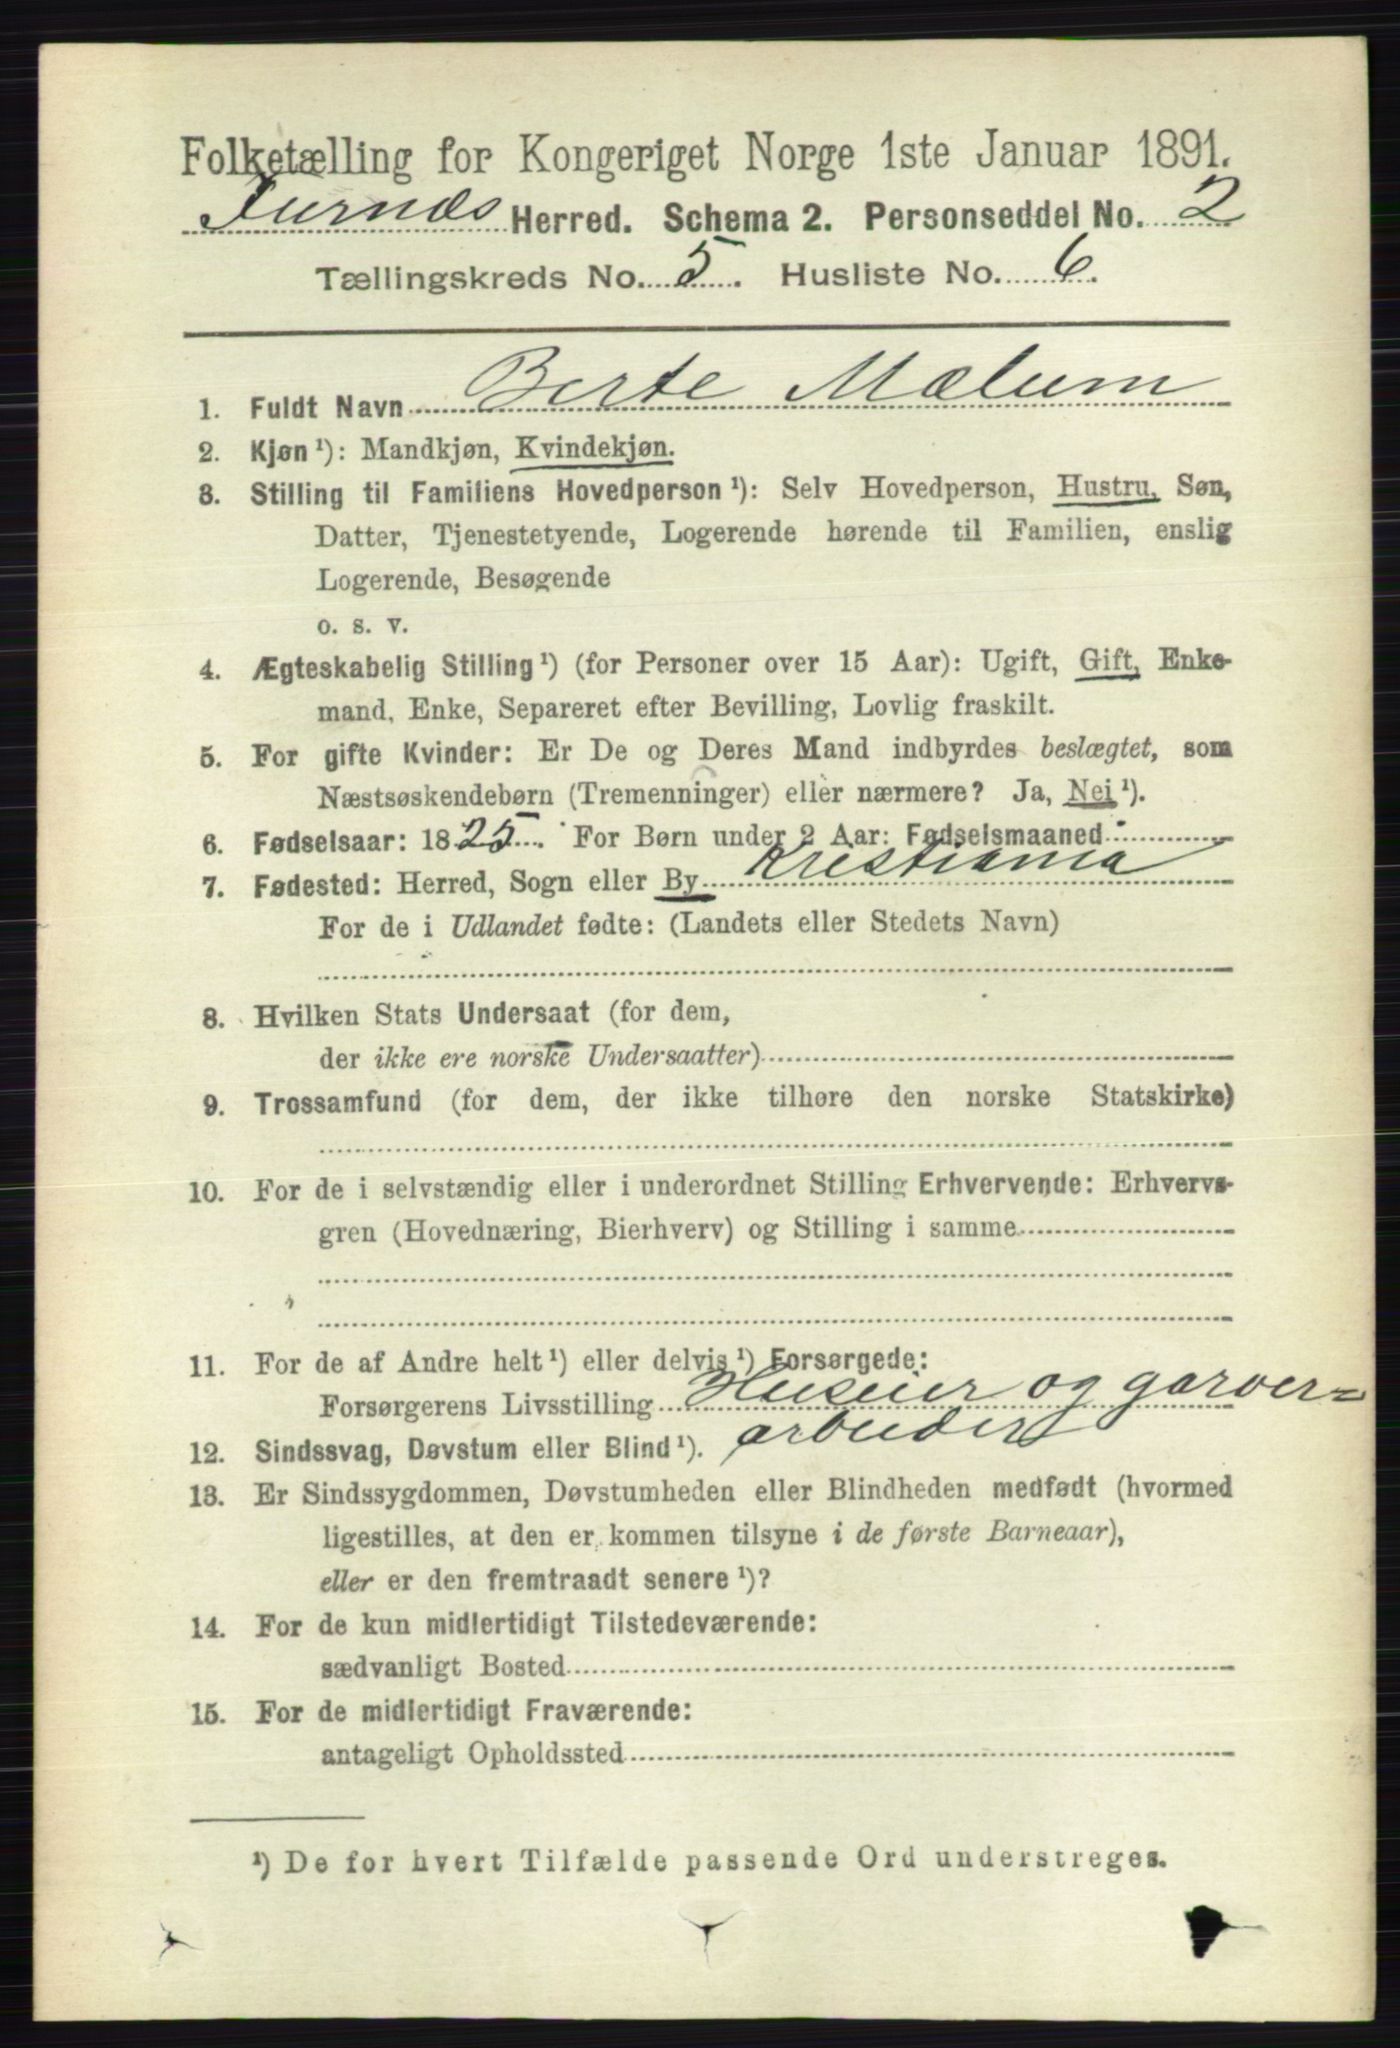 Folketælling for Kongeriget Norge 1ste Januar 1891.
Furnæs Herred. Schema 2. Personseddel No. 2
Tællingskreds No. 5. Husliste No. 6.
1. Fuldt Navn Berte Mælum
2. Kjøn ¹): Mandkjøn, Kvindekjøn.
3. Stilling til Familiens Hovedperson ¹): Selv Hovedperson, Hustru, Søn,
Datter, Tjenestetyende, Logerende hørende til Familien, enslig
Logerende, Besøgende
o. s. v.
4. Ægteskabelig Stilling ¹) (for Personer over 15 Aar): Ugift, Gift, Enke-
mand, Enke, Separeret efter Bevilling, Lovlig fraskilt.
5. For gifte Kvinder: Er De og Deres Mand indbyrdes beslægtet, som
Næstsøskendebørn (Tremenninger) eller nærmere? Ja, Nei ¹).
6. Fødselsaar: 1825. For Børn under 2 Aar: Fødselsmaaned
7. Fødested: Herred, Sogn eller By Kristiania
For de i Udlandet fødte: (Landets eller Stedets Navn)
8. Hvilken Stats Undersaat (for dem,
der ikke ere norske Undersaatter)
9. Trossamfund (for dem, der ikke tilhøre den norske Statskirke)
10. For de i selvstændig eller i underordnet Stilling Erhvervende: Erhvervs-
gren (Hovednæring, Bierhverv) og Stilling i samme
11. For de af Andre helt ¹) eller delvis ¹) Forsørgede:
Forsørgerens Livsstilling Huseier og garver=
arbeider
12. Sindssvag, Døvstum eller Blind ¹).
13. Er Sindssygdommen, Døvstumheden eller Blindheden medfødt (hvormed
ligestilles, at den er kommen tilsyne i de første Barneaar),
eller er den fremtraadt senere ¹)?
14. For de kun midlertidigt Tilstedeværende:
sædvanligt Bosted
15. For de midlertidigt Fraværende:
antageligt Opholdssted
¹) De for hvert Tilfælde passende Ord understreges.